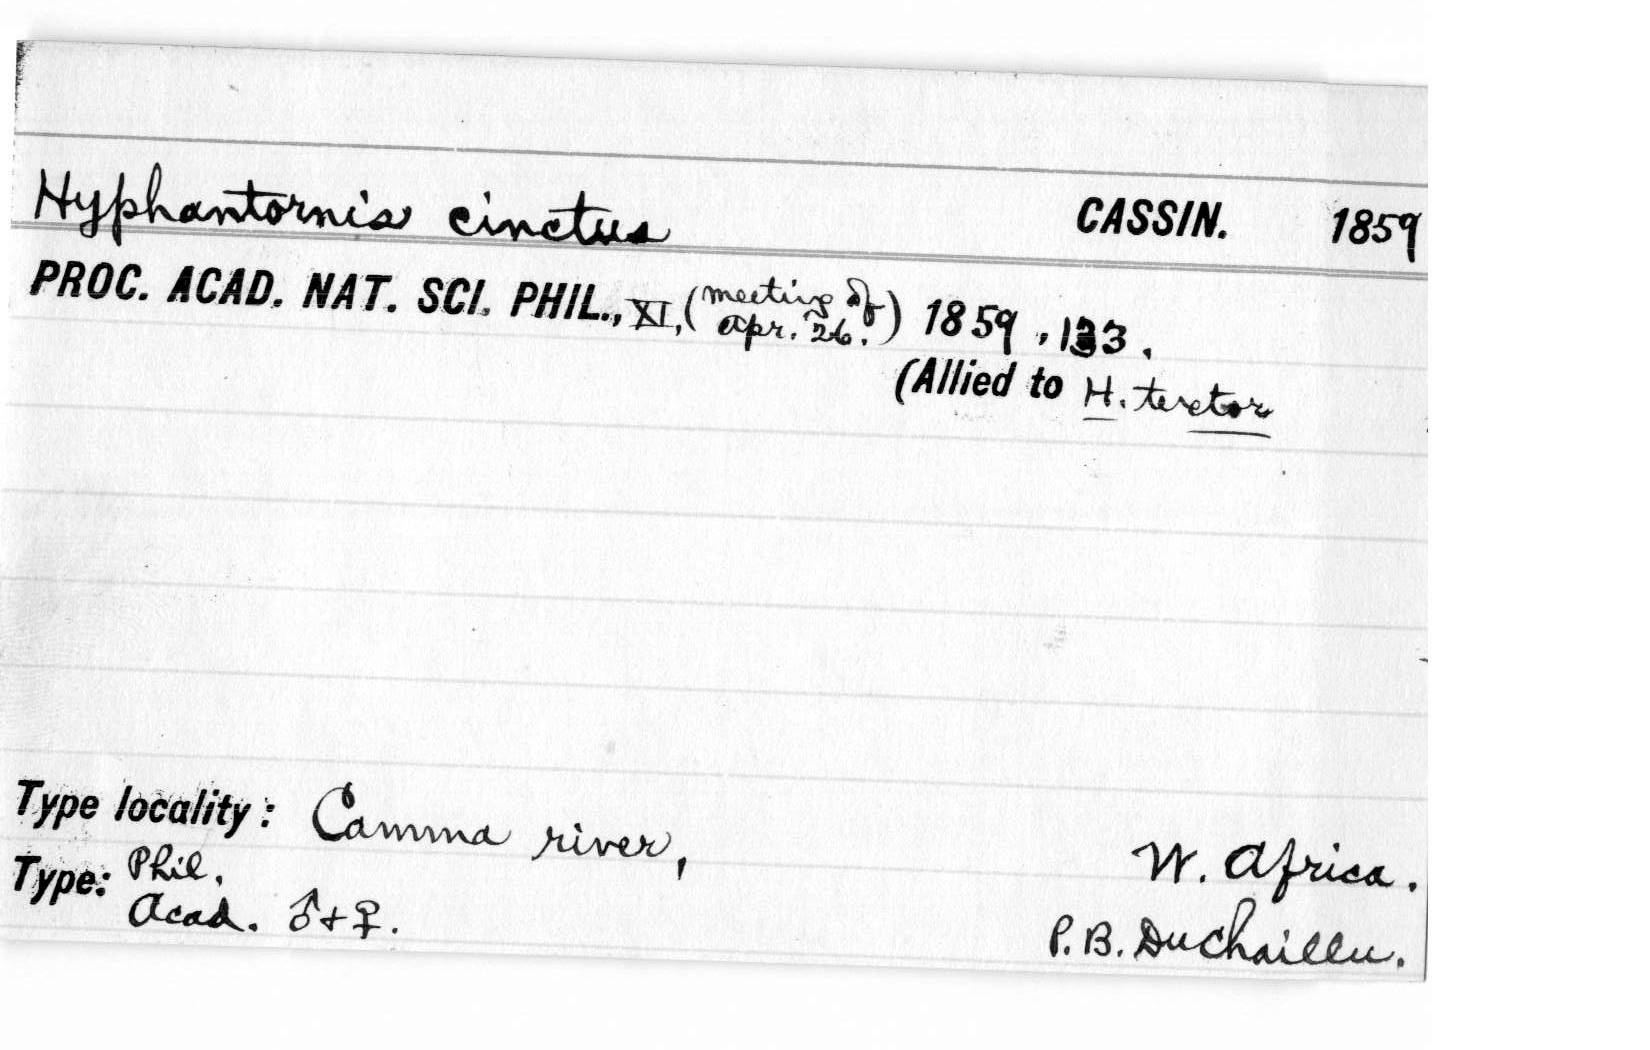 Hyphantornis cinctus CASSIN. 1859
PROC. ACAD. NAT. SCI. PHIL., XI, (meeting of Apr. 26.) 1859, 133.
(Allied to H. textor
Type locality: Camma river, W. Africa.
Type: Phil. Acad. ♂ + ♀. P. B. DuChaillu.